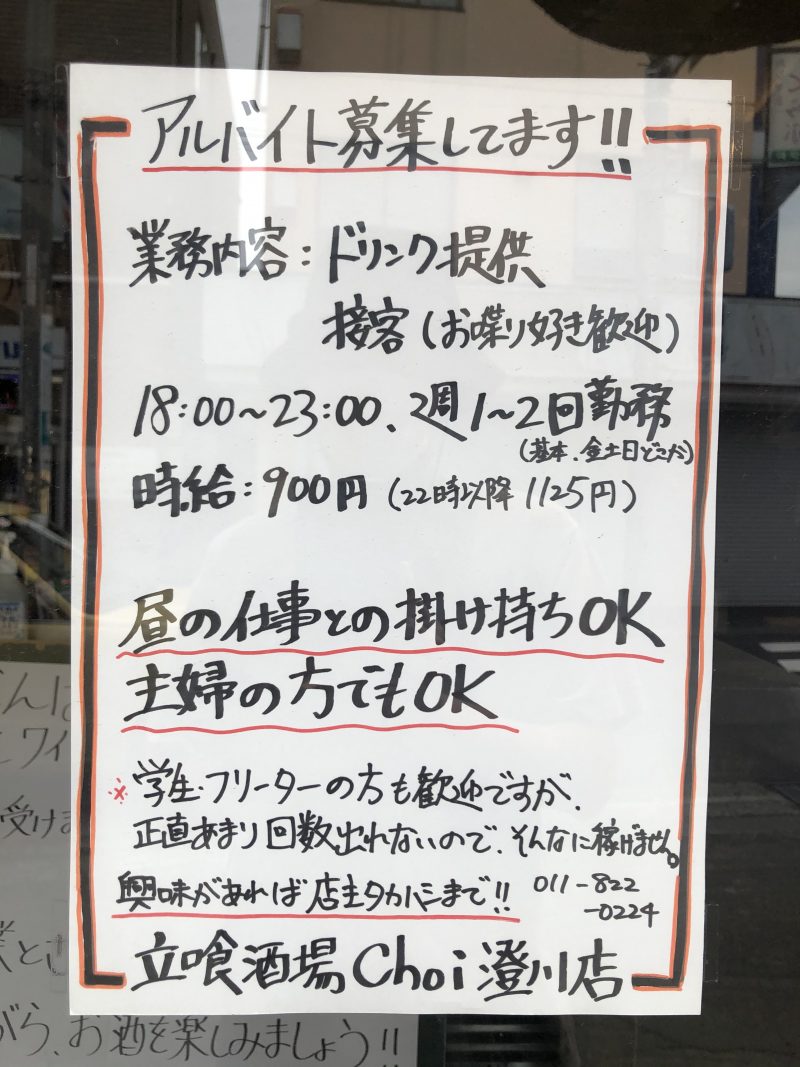 アルバイト募集してます!!
業務内容:ドリンク提供
接客(お喋り好き歓迎)
18:00~23:00、週1~2回勤務
(基本、金土日どこか)
時給:900円(22時以降1125円)
昼の仕事との掛け持ちOK
主婦の方でもOK
※学生・フリーターの方も歓迎ですが、
正直あまり回数出れないので、そんなに稼げません。
興味があれば店主タカハシまで!! 011-822
-0224
立喰酒場Choi澄川店
受け
がら、お酒を楽しみましょう!!